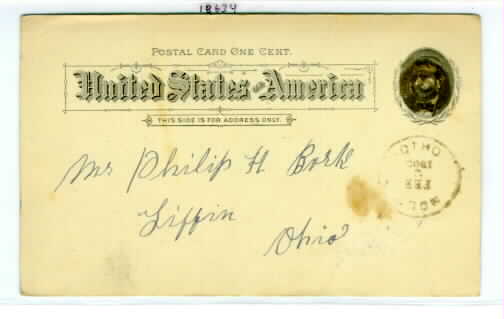 18624
POSTAL CARD ONE CENT.
United States of America
THIS SIDE IS FOR ADDRESS ONLY.
OHIO
FEB
Mr Philip H Bork
Tiffin
Ohio